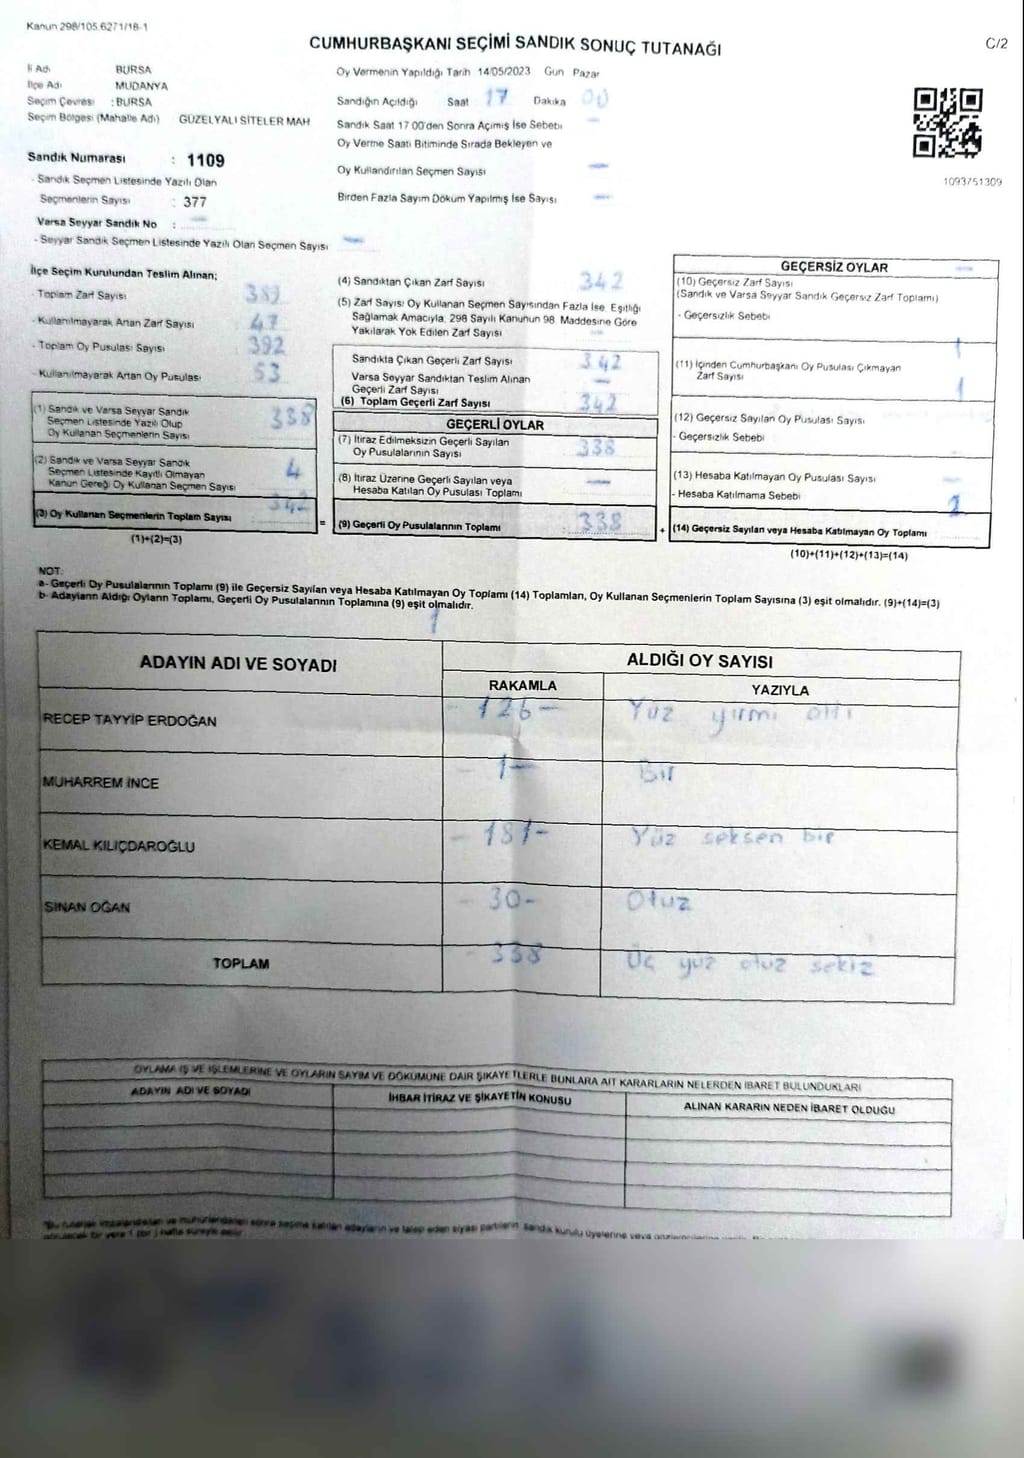 Kanun 298/105.6271/18-1
CUMHURBAŞKANI SEÇİMİ SANDIK SONUÇ TUTANAĞI
C/2
İl Adı BURSA
İlçe Adı MUDANYA
Seçim Çevresi : BURSA
Seçim Bölgesi (Mahalle Adı) GÜZELYALI SİTELER MAH
Sandık Numarası : 1109
- Sandık Seçmen Listesinde Yazılı Olan
Seçmenlerin Sayısı : 377
Varsa Seyyar Sandık No :
- Seyyar Sandık Seçmen Listesinde Yazılı Olan Seçmen Sayısı
Oy Vermenin Yapıldığı Tarih 14/05/2023 Gün Pazar
Sandığın Açıldığı Saat 17 Dakika 00
Sandık Saat 17 00'den Sonra Açımış İse Sebebi
Oy Verme Saati Bitiminde Sırada Bekleyen ve
Oy Kullandırılan Seçmen Sayısı
Birden Fazla Sayım Döküm Yapılmış İse Sayısı
1093751309
İlçe Seçim Kurulundan Teslim Alınan;
- Toplam Zarf Sayısı
- Kullanılmayarak Artan Zarf Sayısı 47
- Toplam Oy Pusulası Sayısı 392
- Kullanılmayarak Artan Oy Pusulası 53
(1) Sandık ve Varsa Seyyar Sandık
Seçmen Listesinde Yazılı Olup
Oy Kullanan Seçmenlerin Sayısı 338
(2) Sandık ve Varsa Seyyar Sandık
Seçmen Listesinde Kayıtlı Olmayan
Kanun Gereği Oy Kullanan Seçmen Sayısı 4
(3) Oy Kullanan Seçmenlerin Toplam Sayısı 342
(1)+(2)=(3)
(4) Sandıktan Çıkan Zarf Sayısı 342
(5) Zarf Sayısı Oy Kullanan Seçmen Sayısından Fazla İse, Eşitliği
Sağlamak Amacıyla, 298 Sayılı Kanunun 98. Maddesine Göre
Yakılarak Yok Edilen Zarf Sayısı
Sandıkta Çıkan Geçerli Zarf Sayısı 342
Varsa Seyyar Sandıktan Teslim Alınan
Geçerli Zarf Sayısı
(6) Toplam Geçerli Zarf Sayısı 342
GEÇERLİ OYLAR
(7) İtiraz Edilmeksizin Geçerli Sayılan
Oy Pusulalarının Sayısı 338
(8) İtiraz Üzerine Geçerli Sayılan veya
Hesaba Katılan Oy Pusulası Toplamı
= (9) Geçerli Oy Pusulalarının Toplamı : 338
GEÇERSİZ OYLAR
(10) Geçersiz Zarf Sayısı
(Sandık ve Varsa Seyyar Sandık Geçersiz Zarf Toplamı)
- Geçersizlik Sebebi
1
(11) İçinden Cumhurbaşkanı Oy Pusulası Çıkmayan
Zarf Sayısı 1
(12) Geçersiz Sayılan Oy Pusulası Sayısı
- Geçersizlik Sebebi
(13) Hesaba Katılmayan Oy Pusulası Sayısı
- Hesaba Katılmama Sebebi
+ (14) Geçersiz Sayılan veya Hesaba Katılmayan Oy Toplamı
(10)+(11)+(12)+(13)=(14)
NOT:
a- Geçerli Oy Pusulalarının Toplamı (9) ile Geçersiz Sayılan veya Hesaba Katılmayan Oy Toplamı (14) Toplamları, Oy Kullanan Seçmenlerin Toplam Sayısına (3) eşit olmalıdır. (9)+(14)=(3)
b- Adayların Aldığı Oyların Toplamı, Geçerli Oy Pusulalarının Toplamına (9) eşit olmalıdır.
1
ADAYIN ADI VE SOYADI ALDIĞI OY SAYISI
RAKAMLA YAZIYLA
RECEP TAYYİP ERDOĞAN - 126 - Yüz yirmi altı
MUHARREM İNCE - 1 - Bir
KEMAL KILIÇDAROĞLU - 181 - Yüz seksen bir
SİNAN OĞAN - 30 - Otuz
TOPLAM - 338 Üç yüz otuz sekiz
OYLAMA İŞ VE İŞLEMLERİNE VE OYLARIN SAYIM VE DÖKÜMÜNE DAİR ŞİKAYETLERLE BUNLARA AİT KARARLARIN NELERDEN İBARET BULUNDUKLARI
ADAYIN ADI VE SOYADI İHBAR İTİRAZ VE ŞİKAYETİN KONUSU ALINAN KARARIN NEDEN İBARET OLDUĞU